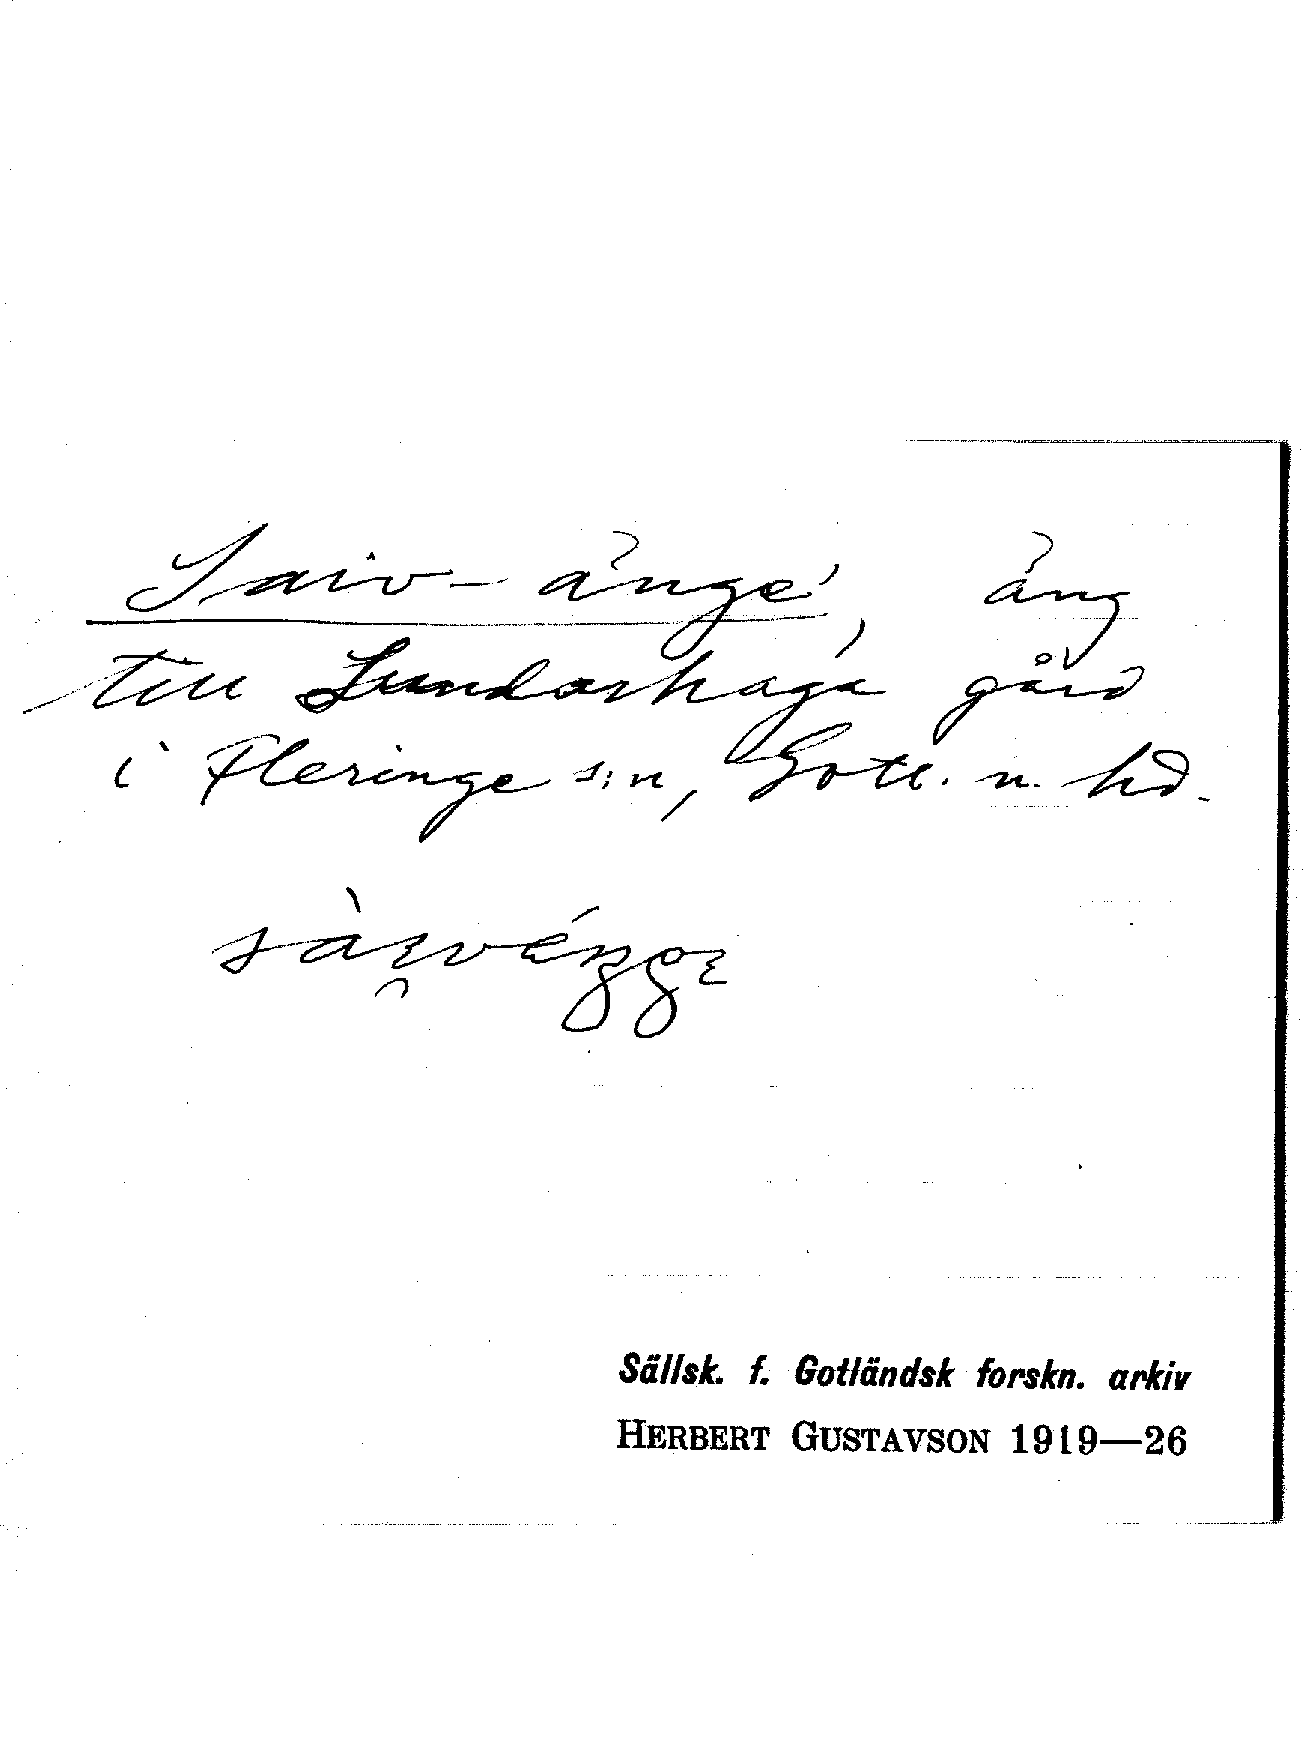 Saiv-änge, äng
till Lundarhaga gård
i Fleringe s:n, Gotl. n. hd.
Sällsk. f. Gotländsk forskn. arkiv
HERBERT GUSTAVSON 1919—26